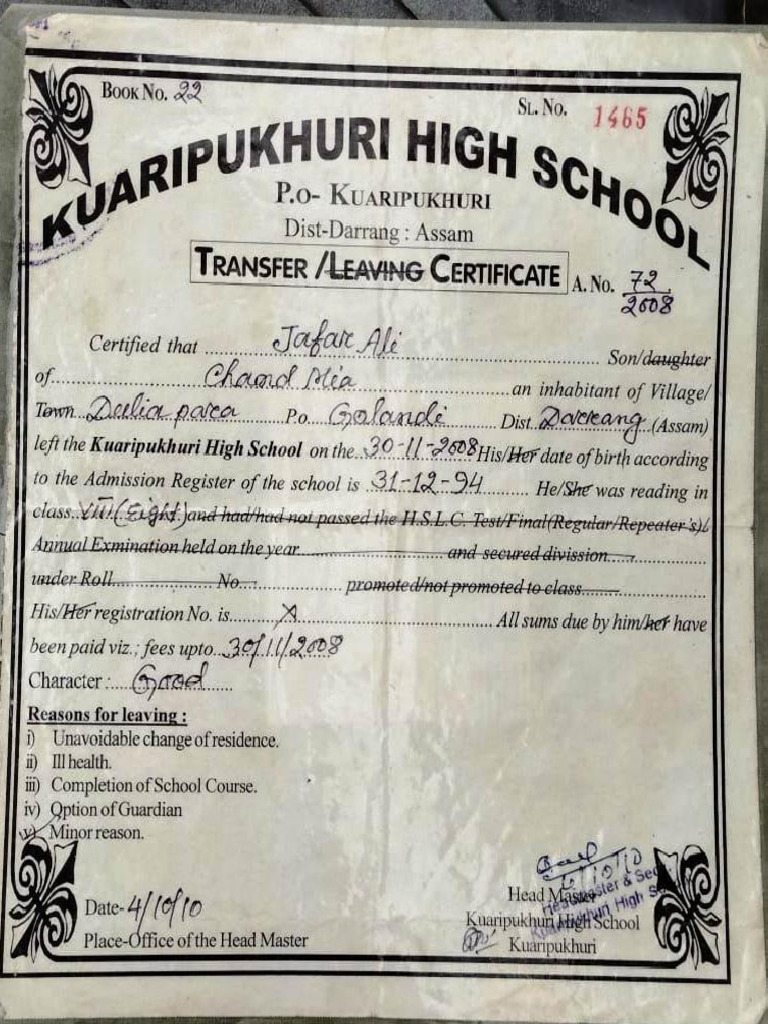 BOOK NO. 22
SL. NO. 1465
KUARIPUKHURI HIGH SCHOOL
P.O- KUARIPUKHURI
Dist-Darrang : Assam
TRANSFER /LEAVING CERTIFICATE
A. No. 72/2008
Certified that Jafar Ali Son/daughter
of Chand Mia an inhabitant of Village/
Town Dulia para P.o. Golandi Dist. Darrang (Assam)
left the Kuaripukhuri High School on the 30-11-2008 His/Her date of birth according
to the Admission Register of the school is 31-12-94 He/She was reading in
class VIII (Eight) and had/had not passed the H.S.L.C. Test/Final(Regular/Repeater's)/
Annual Exmination held on the year and secured divission
under Roll No. promoted/not promoted to class
His/Her registration No. is X All sums due by him/her have
been paid viz.; fees upto 30/11/2008
Character : Good
Reasons for leaving :
i) Unavoidable change of residence.
ii) Ill health.
iii) Completion of School Course.
iv) Option of Guardian
v) Minor reason.
Date- 4/10/10
Place-Office of the Head Master
Head Master
Kuaripukhuri High School
Kuaripukhuri
Headmaster & Sec
Kuaripukhuri High S